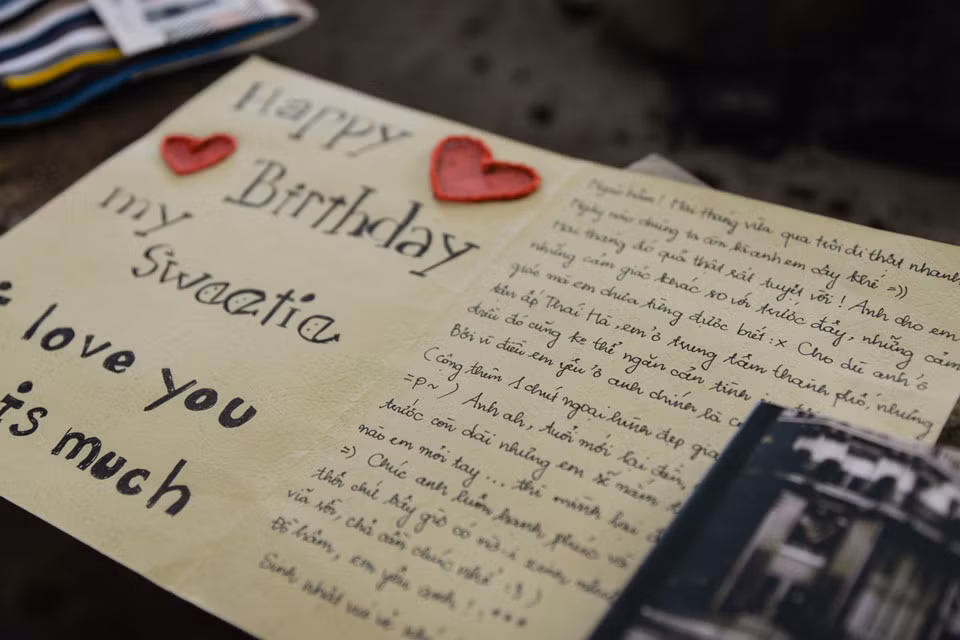 Happy
Birthday
my
Sweetie
I love you
is much
! Hai tháng vừa qua trôi đi thật nhanh
Ngày nào chúng ta còn là anh em đấy khi =))
Hai tháng đó quả thật rất tuyệt vời! Anh cho em
những cảm giác khác so với trước đây, những cảm
giác mà em chưa từng được biết :x Cho dù anh ở
tận ấp Thái Hà, em ở trung tâm thành phố, nhưng
điều đó cũng ko thể ngăn cản tình
Bởi vì điều em yêu ở anh chính là
(cộng thêm 1 chút ngoại hình đẹp
=p~) Anh ah, tuổi mới lại đến,
trước còn dài nhưng em sẽ nắm
nào em mỏi tay... thì mình
=) Chúc anh luôn hạnh phúc
thôi chứ bây giờ có xinh,
rồi, chả cần chúc nhể :3)
Đồ hâm, em yêu anh
Sinh nhật vui vẻ